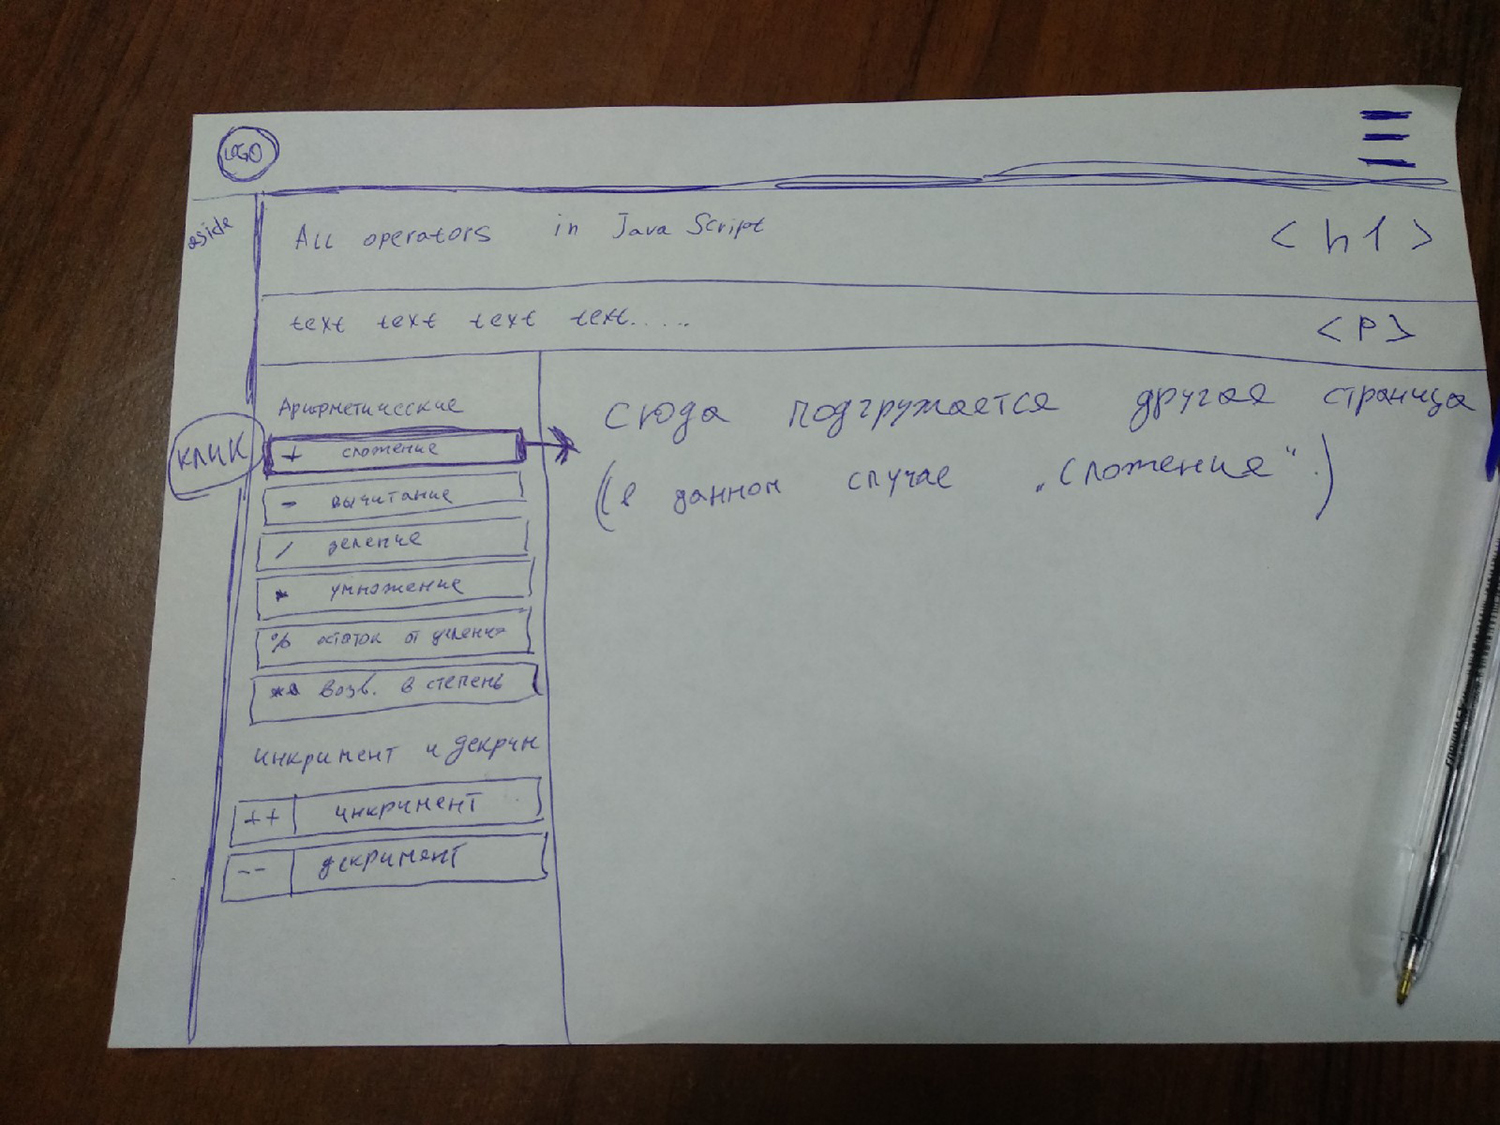 LOGO
aside
All operators in Java Script
<h1>
text text text text.....
<P>
Арифметические
КЛИК
+ сложение
- вычитание
/ деление
* умножение
% остаток от деления
** возв. в степень
инкримент и декрим
++ инкримент
-- декримент
сюда подгружается другая страница
(в данном случае „сложение".)